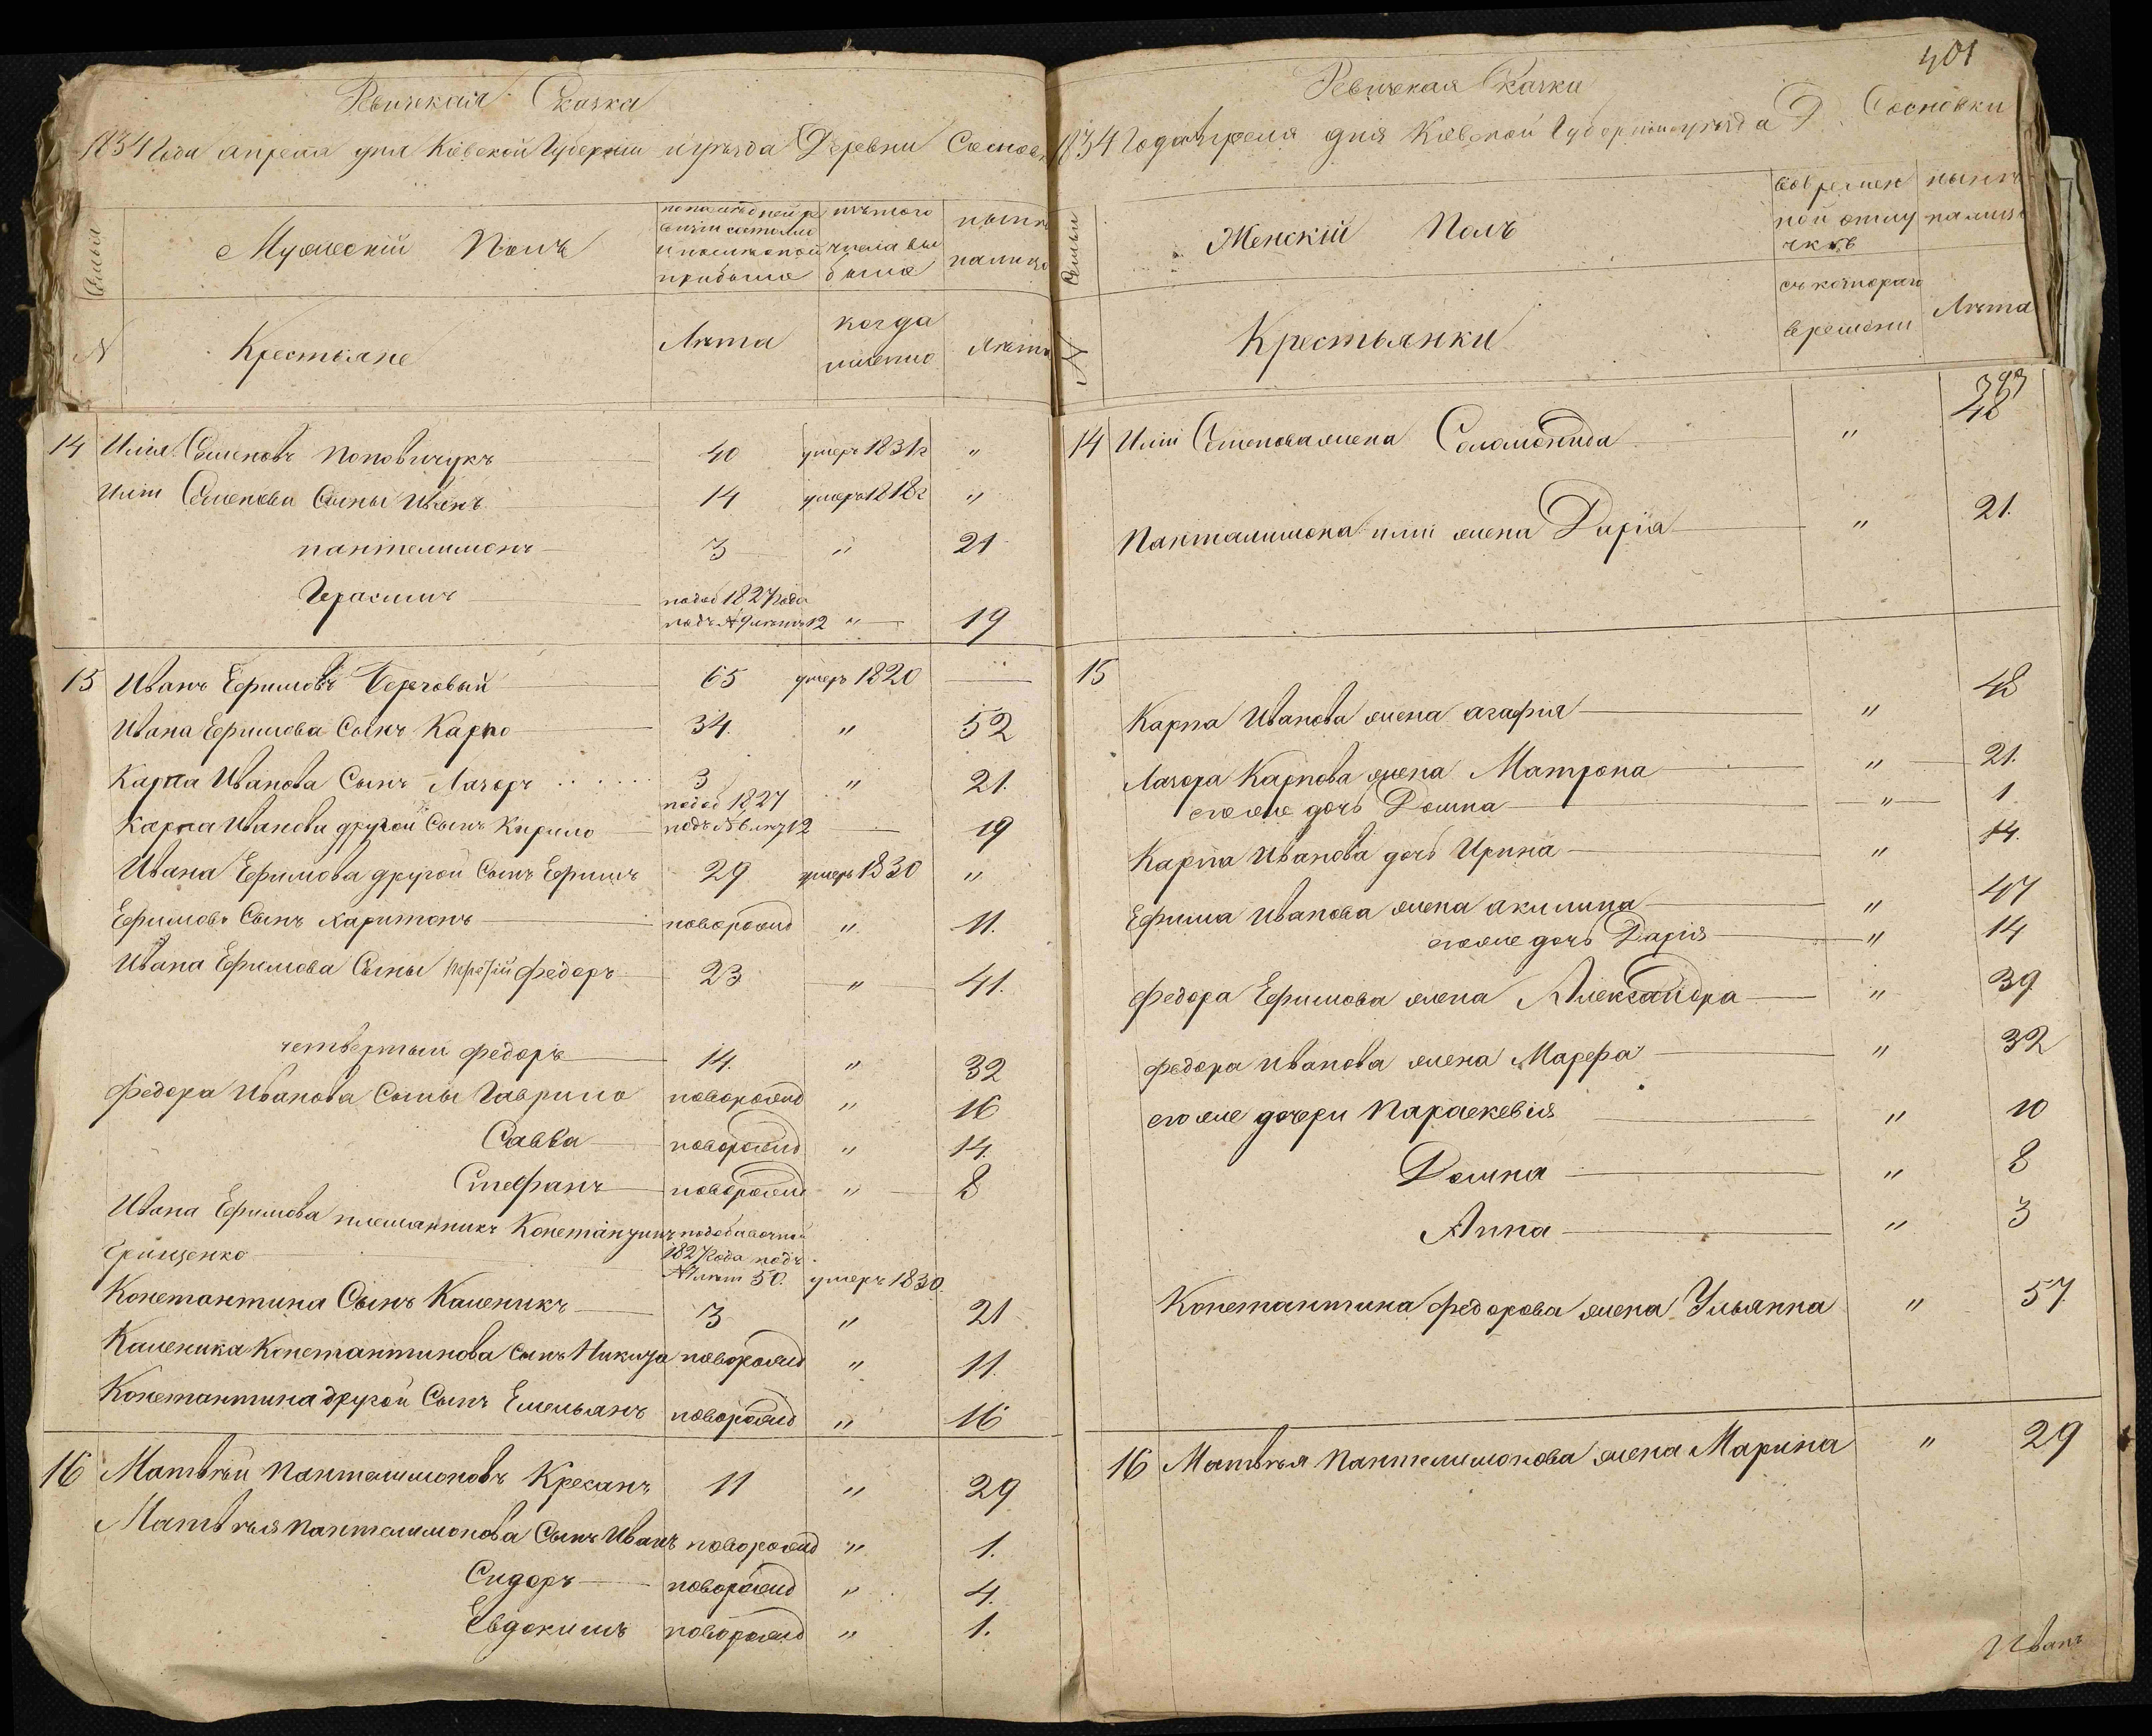 Ревизская Сказка
1834 Года апреля дня Киевской Губернии и уезда Деревни Соснов
Семьи
Мужеский Полъ
по последней ревизии состояло и после оной прибыло
изъ того числа выбыло
ныне на лицо
N
Крестьяне
Лета
когда именно
Лета
14 Илія Семеновъ Поповичукъ 40 умеръ 1831г "
Иліи Семенова Сыны Иванъ 14 умеръ 1818г "
пантелимонъ 3 " 21
Герасимъ подоб 1827 года подъ N 9 летъ 12 " 19
15 Иванъ Ефимовъ Береговый 65 умеръ 1820
Ивана Ефимова Сынъ Карпо 34. " 52
Карпа Иванова Сынъ Лазоръ 3 " 21.
Карпа Иванова другой Сынъ Кирило подоб 1827 подъ N 8 лет 12 19
Ивана Ефимова другой Сынъ Ефимъ 29 умеръ 1830 "
Ефимовъ Сынъ Харитонъ новорожд " 11.
Ивана Ефимова Сыны третий федоръ 23 " 41.
четвертый федоръ 14. " 32
федора Иванова Сыны Гаврило новорожд " 16
Савва новорожд " 14.
Стефанъ новорожд " 8
Ивана Ефимова племянникъ Константинъ
Грищенко
1827 Года подъ N 7 лет 50. умеръ 1830.
Константина Сынъ Каленикъ 3 " 21
Каленика Константинова сынъ Никита новорожд " 11.
Константина другой Сынъ Емельянъ новорожд " 16
16 Матвей Пантелимоновъ Креканъ 11 " 29
Матвея пантелимонова Сынъ Иванъ новорожд " 1.
Сидоръ новорожд " 4.
Евдокимъ новорожд " 1.
401
Ревизская Сказки
1834 Года апреля дня Киевской Губернии и уезда Д. Сосновки
Семьи
Женскій Полъ
во временной отлучке
ныне на лицо
N
Крестьянки
съ котораго времени
Лета
393
14 Иліи Семенова жена Соломонида " 48
Пантелимона иліи жена Дарія " 21.
15
Карпа Иванова жена агафия " 48
Лазора Карпова жена Матрона " 21.
его же дочь Домна " 1
Карпа Иванова дочь Ирина " 14.
Ефима Иванова жена акилина " 47
его же дочь Дарія " 14
федора Ефимова жена Александра " 39
федора иванова жена Марфа " 32
его же дочери параскевія " 10
Домна " 8
Анна " 3
Константина федорова жена Ульянна " 57.
16 Матвея пантелимонова жена Марина " 29
Иванъ